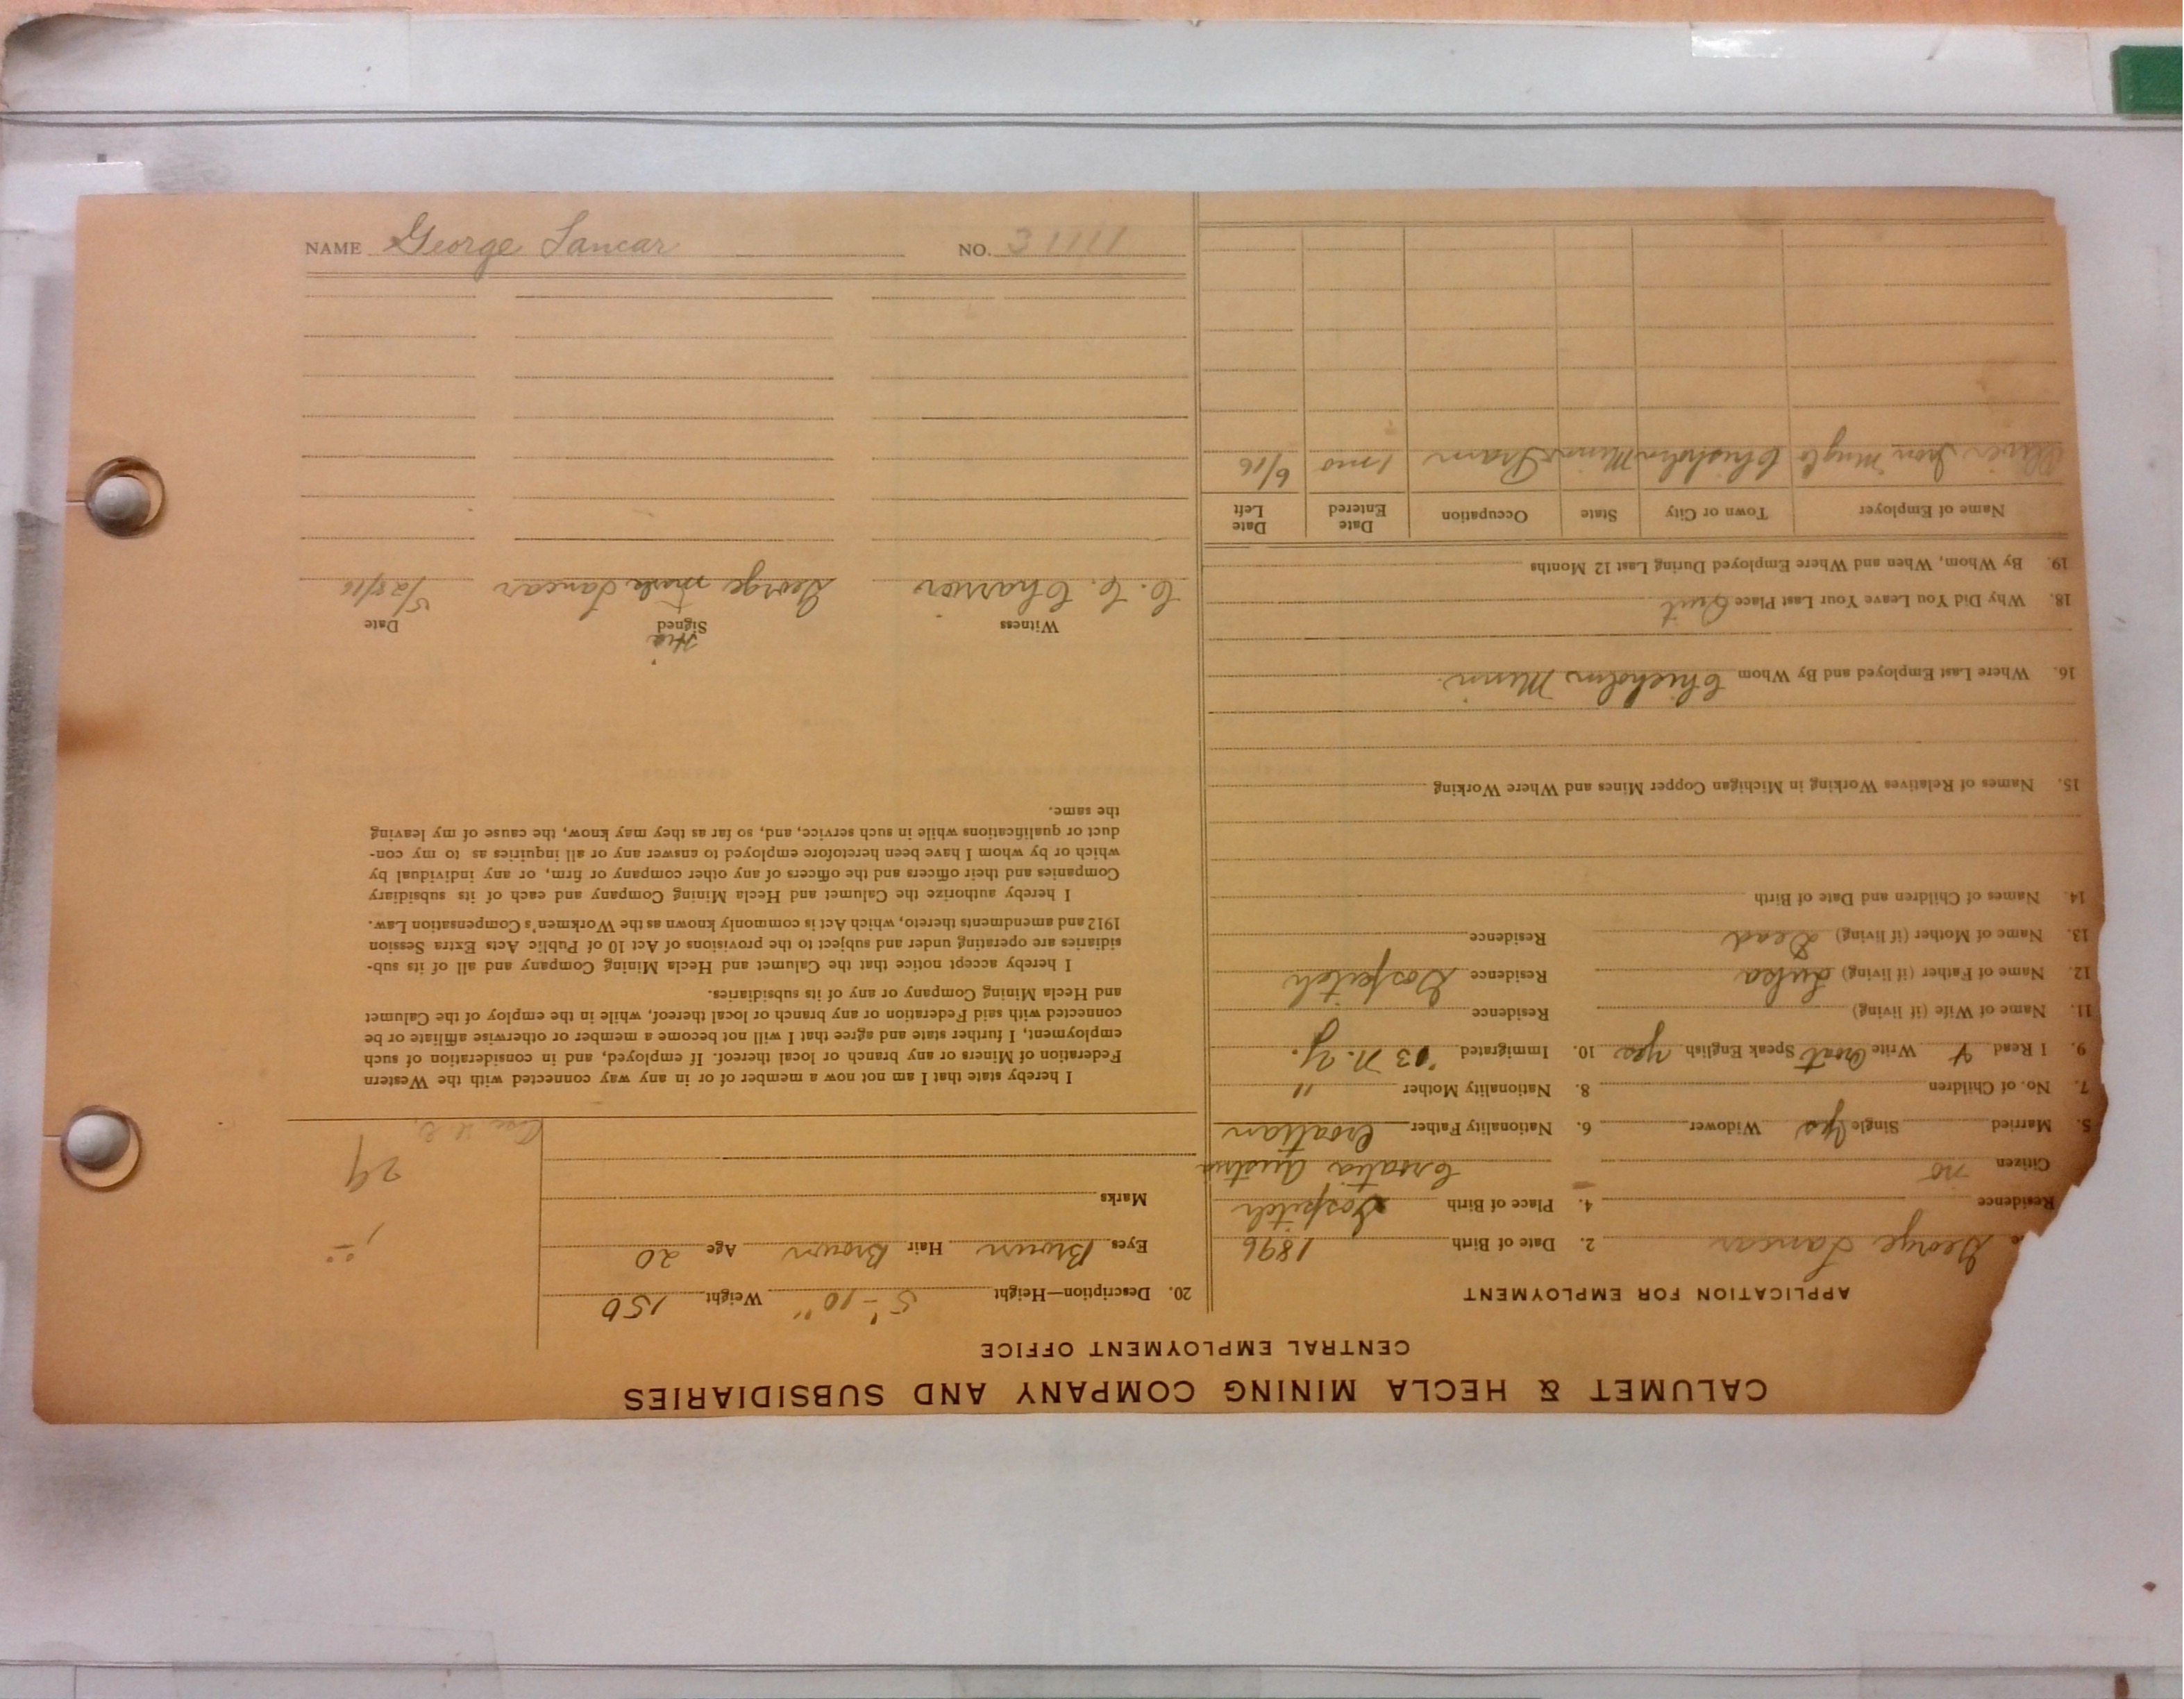 CALUMET & HECLA MINING COMPANY AND SUBSIDIARIES
CENTRAL EMPLOYMENT OFFICE
APPLICATION FOR EMPLOYMENT
e George Sancar 2. Date of Birth 1896
Residence 4. Place of Birth Gospitch
Citizen no Croatia Austria
5. Married Single Yes Widower 6. Nationality Father Croatian
7. No. of Children 8. Nationality Mother "
9. I Read & Write Croat Speak English yes 10. Immigrated '13 N.Y.
11. Name of Wife (if living) Residence
12. Name of Father (if living) Luka Residence Gospitch
13. Name of Mother (if living) Dead Residence
14. Names of Children and Date of Birth
15. Names of Relatives Working in Michigan Copper Mines and Where Working
16. Where Last Employed and By Whom Chisholm Minn.
18. Why Did You Leave Your Last Place Quit
19. By Whom, When and Where Employed During Last 12 Months
Name of Employer Town or City State Occupation Date Entered Date Left
Oliver Iron Mng Co Chisholm Minn Tram 1 mo 6/16
20. Description—Height 5'-10" Weight 150
Eyes Brown Hair Brown Age 20
Marks
29
I hereby state that I am not now a member of or in any way connected with the Western
Federation of Miners or any branch or local thereof. If employed, and in consideration of such
employment, I further state and agree that I will not become a member or otherwise affiliate or be
connected with said Federation or any branch or local thereof, while in the employ of the Calumet
and Hecla Mining Company or any of its subsidiaries.
I hereby accept notice that the Calumet and Hecla Mining Company and all of its sub-
sidiaries are operating under and subject to the provisions of Act 10 of Public Acts Extra Session
1912 and amendments thereto, which Act is commonly known as the Workmen's Compensation Law.
I hereby authorize the Calumet and Hecla Mining Company and each of its subsidiary
Companies and their officers and the officers of any other company or firm, or any individual by
which or by whom I have been heretofore employed to answer any or all inquiries as to my con-
duct or qualifications while in such service, and, so far as they may know, the cause of my leaving
the same.
Witness Signed Date
His
C. C. Charrier George mark Sancar 5/28/16
NAME George Sancar NO. 31111